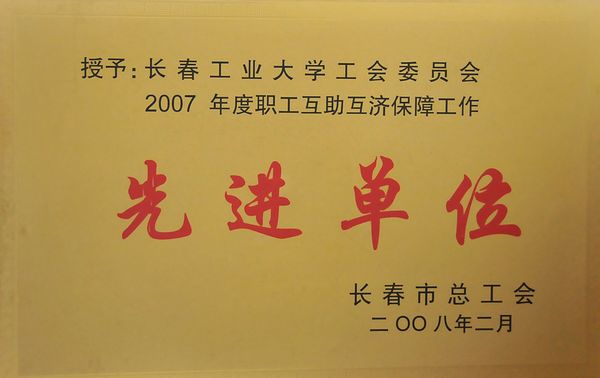 授予:长春工业大学工会委员会
2007 年度职工互助互济保障工作
先进单位
长春市总工会
二OO八年二月